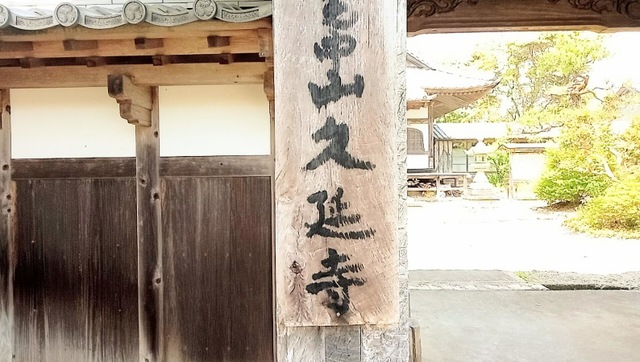 中山久延寺